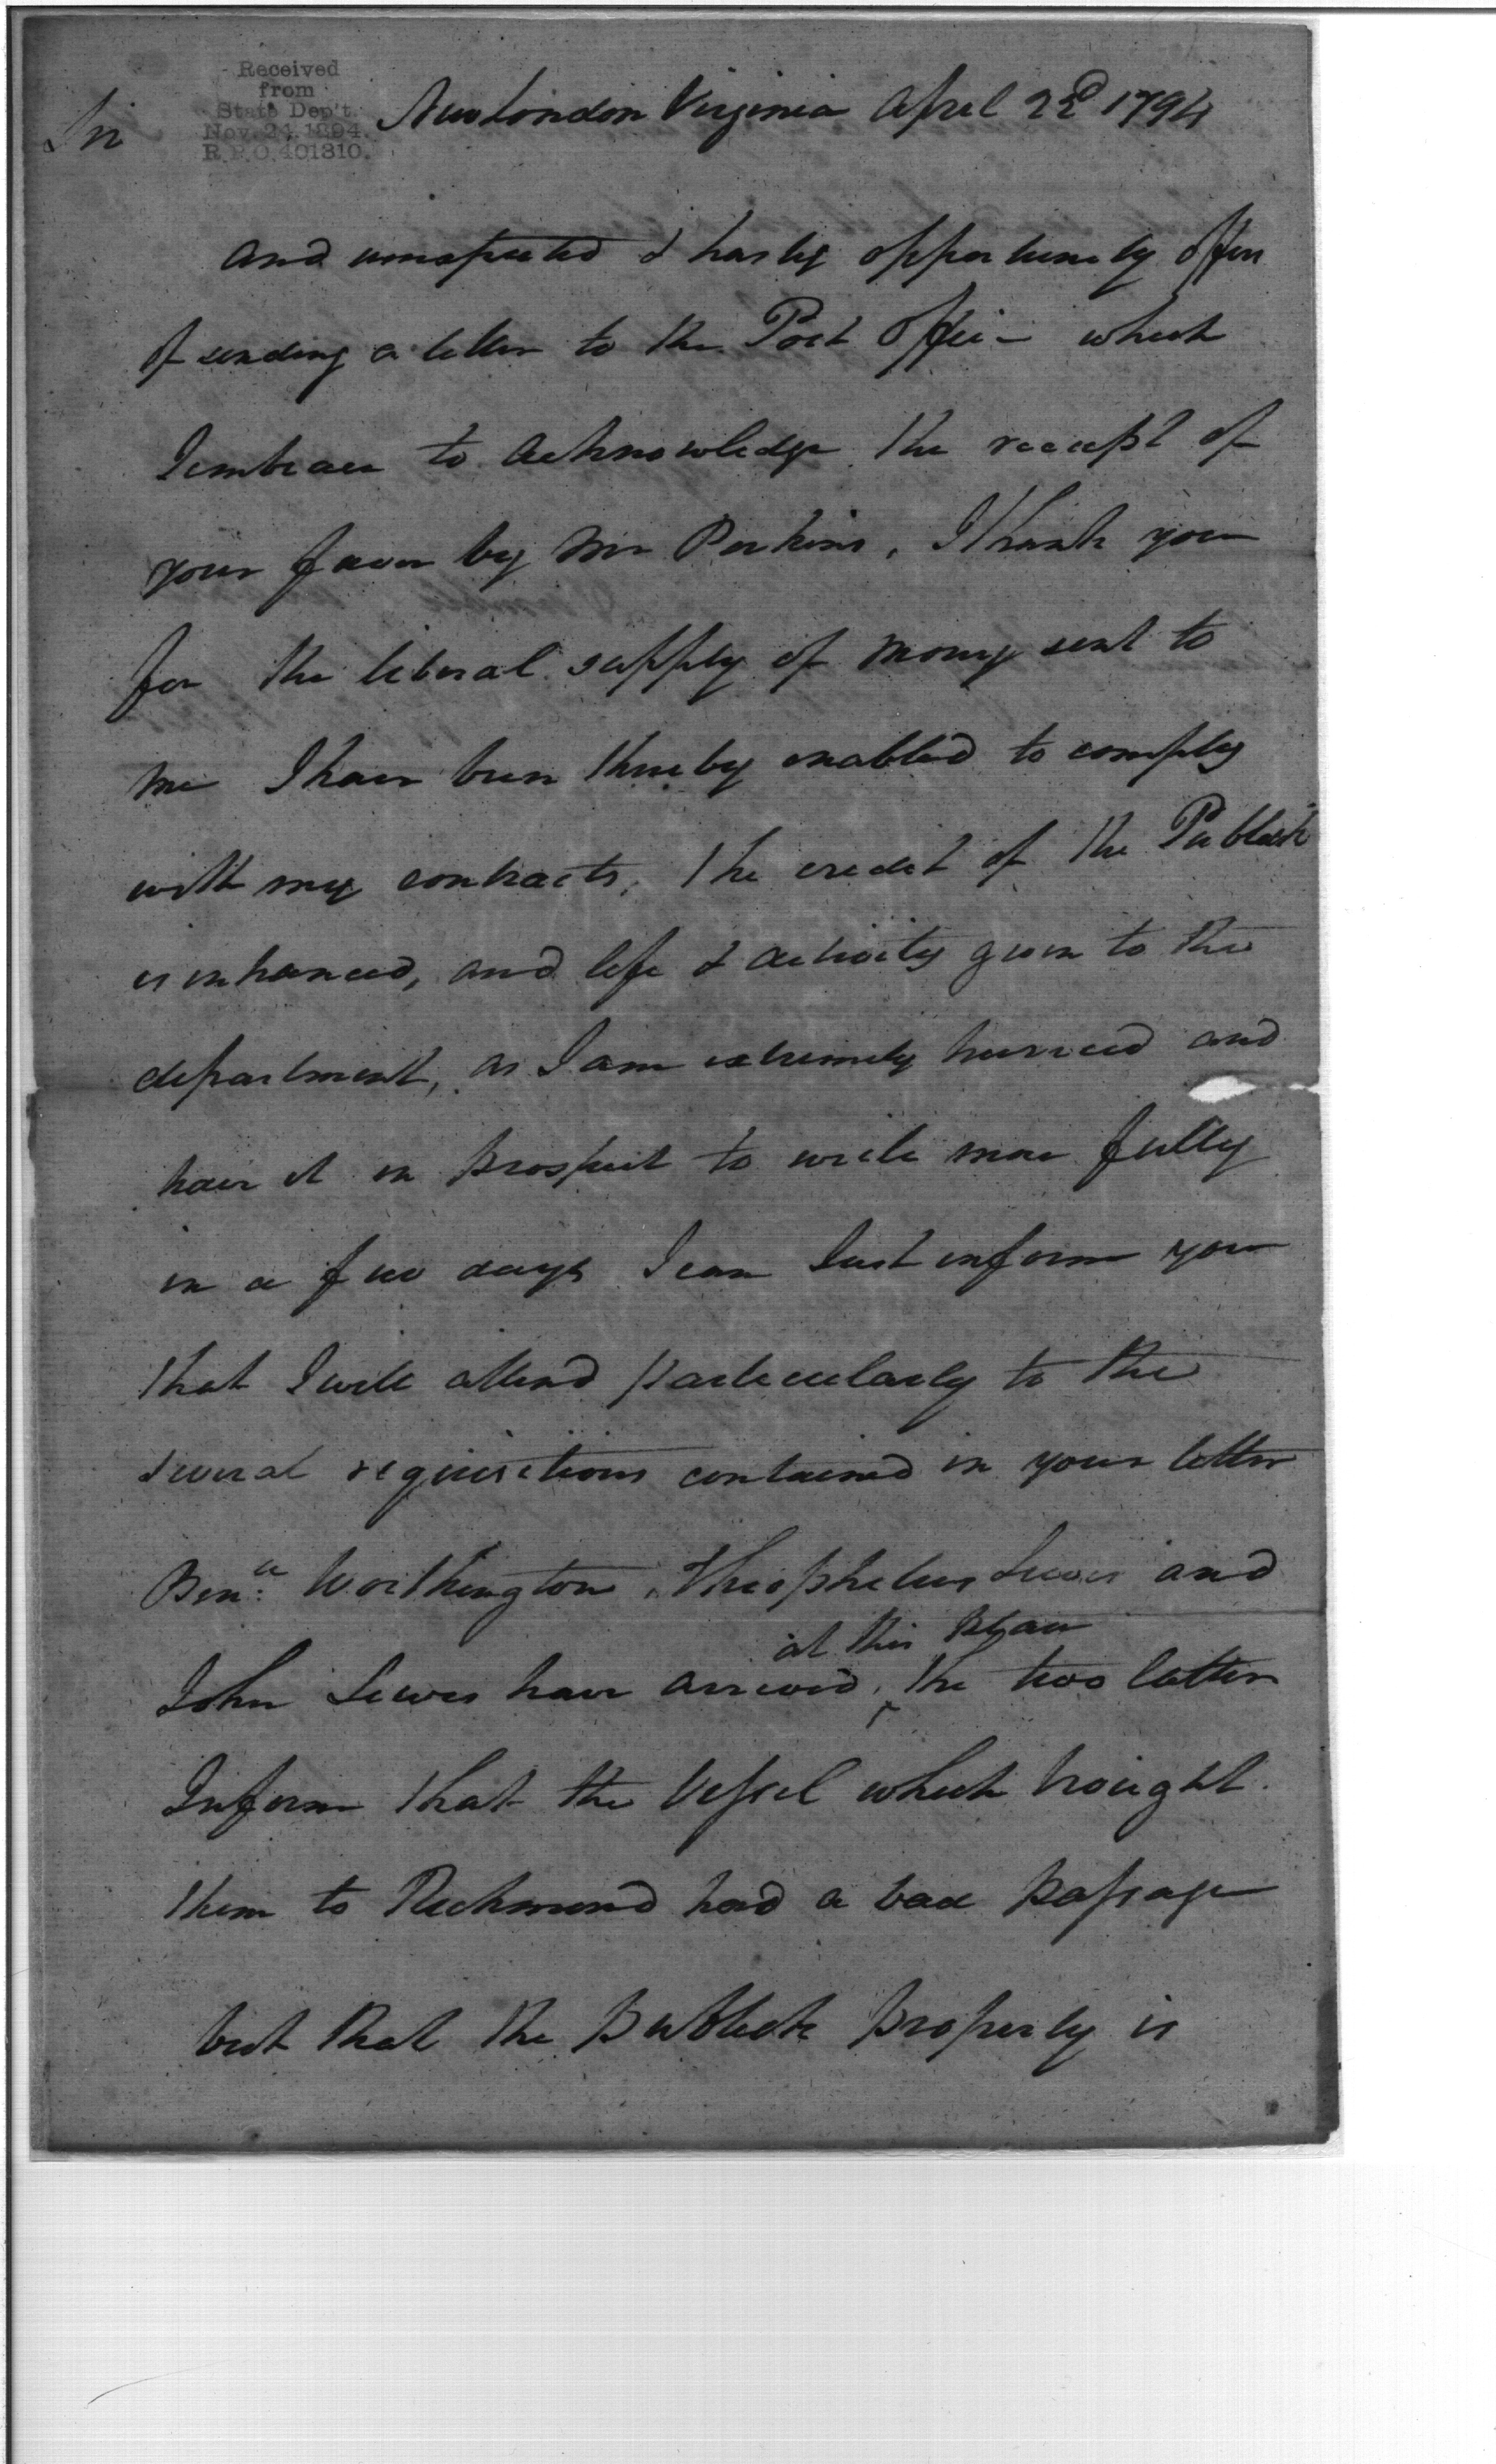 Received
from
State Dep't.
Nov. 24. 1894.
R.P.O. 401310.
Sir
New London Virginia April 22d 1794
and unexpected & hasty oppertunity offers
of sending a letter to the Post Office which
I embrace to acknowledge the receipt of
your favor by Mr Perkins, I thank you
for the liberal supply of money sent to
me I have been thereby enabled to comply
with my contracts, the credit of the Publick
is inhanced, and life & activity given to the
department, as I am extremely hurried and
have it in prospect to write more fully
in a few days I can Just inform you
that I will attend particularly to the
several requisitions contained in your letter
Worthington, Theophelus Lewis and
at this Place
John Lewis have arrived, the two latter
Inform that the Vessel which brought
them to Richmond had a bad passage
but that the Publick property is